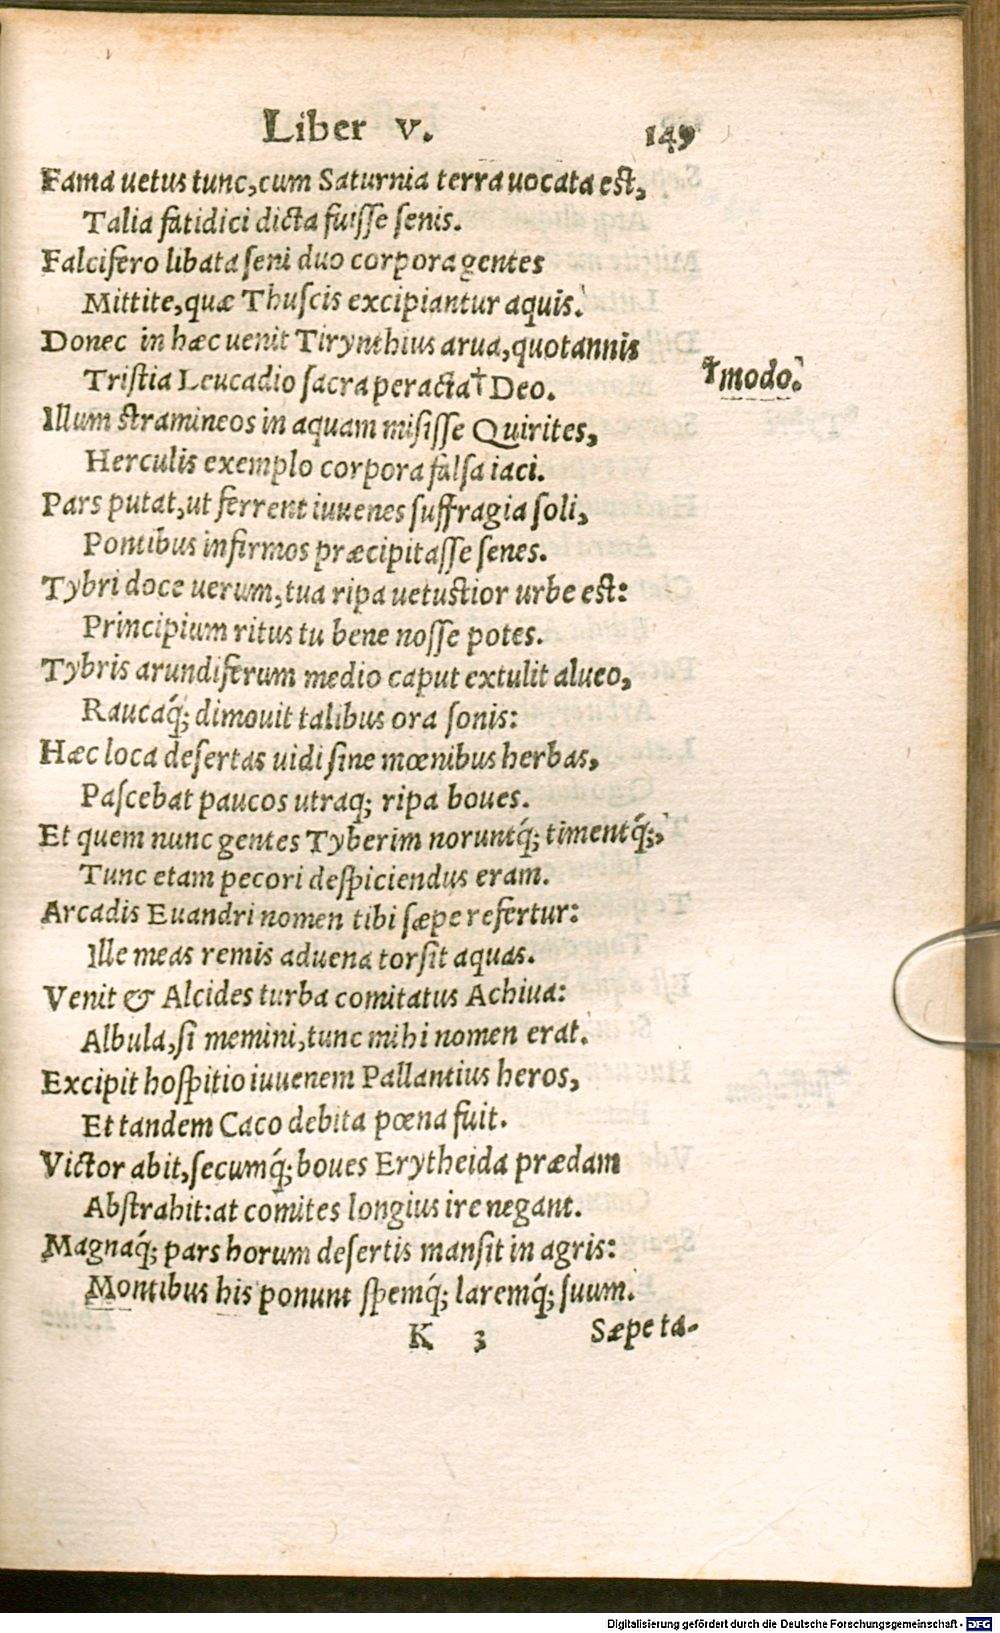 Liber v. 149
Fama uetus tunc, cum Saturnia terra uocata est,
Talia fatidici dicta fuisse senis.
Falcifero libata seni duo corpora gentes
Mittite, quæ Thuscis excipiantur aquis.
Donec in hæc uenit Tirynthius arua, quotannis
Tristia Leucadio sacra peracta† Deo.
†modo.
Illum stramineos in aquam misisse Quirites,
Herculis exemplo corpora falsa iaci.
Pars putat, ut ferrent iuuenes suffragia soli,
Pontibus infirmos præcipitasse senes.
Tybri doce uerum, tua ripa uetustior urbe est:
Principium ritus tu bene nosse potes.
Tybris arundiferum medio caput extulit alueo,
Raucaq́; dimouit talibus ora sonis:
Hæc loca desertas uidi sine mœnibus herbas,
Pascebat paucos utraq; ripa boues.
Et quem nunc gentes Tyberim noruntq́; timentq́;,
Tunc etam pecori despiciendus eram.
Arcadis Euandri nomen tibi sæpe refertur:
Ille meas remis aduena torsit aquas.
Venit & Alcides turba comitatus Achiua:
Albula, si memini, tunc mihi nomen erat.
Excipit hospitio iuuenem Pallantius heros,
Et tandem Caco debita pœna fuit.
Victor abit, secumq́; boues Erytheida prædam
Abstrahit: at comites longius ire negant.
Magnaq́; pars horum desertis mansit in agris:
Montibus his ponunt spemq́; laremq́; suum.
K 3 Sæpe ta-
Digitalisierung gefördert durch die Deutsche Forschungsgemeinschaft - DFG